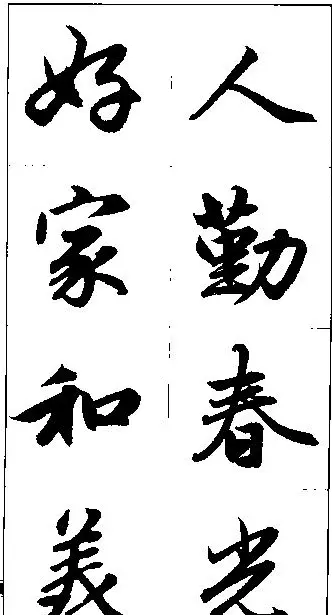 人勤春光
好家和義